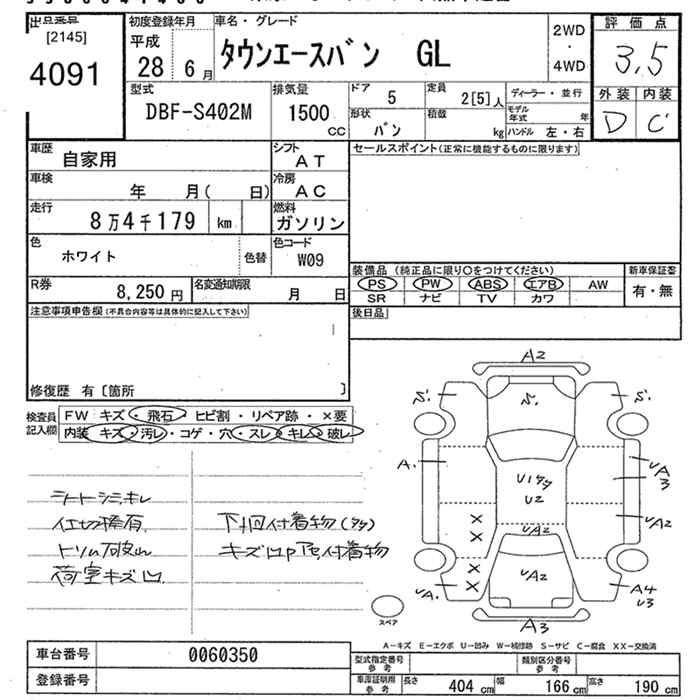 出品票
[2145]
4091
初度登録年月
平成
28 6 月
車名・グレード
タウンエースバン GL
2WD
・
4WD
評 価 点
3,5
外装 内装
D C
型式
DBF-S402M
排気量
1500
CC
ドア
5
定員
2[5]人
ディーラー・並行
形状
バン
積載
kg
モデル年式 年
ハンドル 左・右
車歴
自家用
シフト
AT
セールスポイント(正常に機能するものに限ります)
車検
年 月( 日)
冷房
AC
走行
8万4千179 km
燃料
ガソリン
色
ホワイト
色替
色コード
W09
装備品 (純正品に限り○をつけてください)
新車保証書
PS PW ABS エアB AW
有・無
SR ナビ TV カワ
R券
8,250 円
名変通知期限
月 日
後日品
注意事項申告欄(不具合内容等は具体的に記入して下さい)
修復歴 有〔箇所 〕
検査員記入欄
FW キズ・飛石・ヒビ割・リペア跡・×要
内装 キズ・汚レ・コゲ・穴・スレ・キレ・破レ
シートシミ、キレ
仕切棒有
トリム破れ
荷室キズ凹
下廻付着物(タタ)
キズ凹P
付着物
A2
S.
S.
S.
A.
U1タタ
U2
UA3
UA2
UA2
× ×
× ×
UA.
UA2
A4
U3
A3
スペア
A-キズ E-エクボ U-凹み W-補修跡 S-サビ C-腐食 XX-交換済
車台番号
0060350
登録番号
型式指定番号 参考
類別区分番号 参考
車庫証明用 参考
長さ 404 cm
幅 166 cm
高さ 190 cm